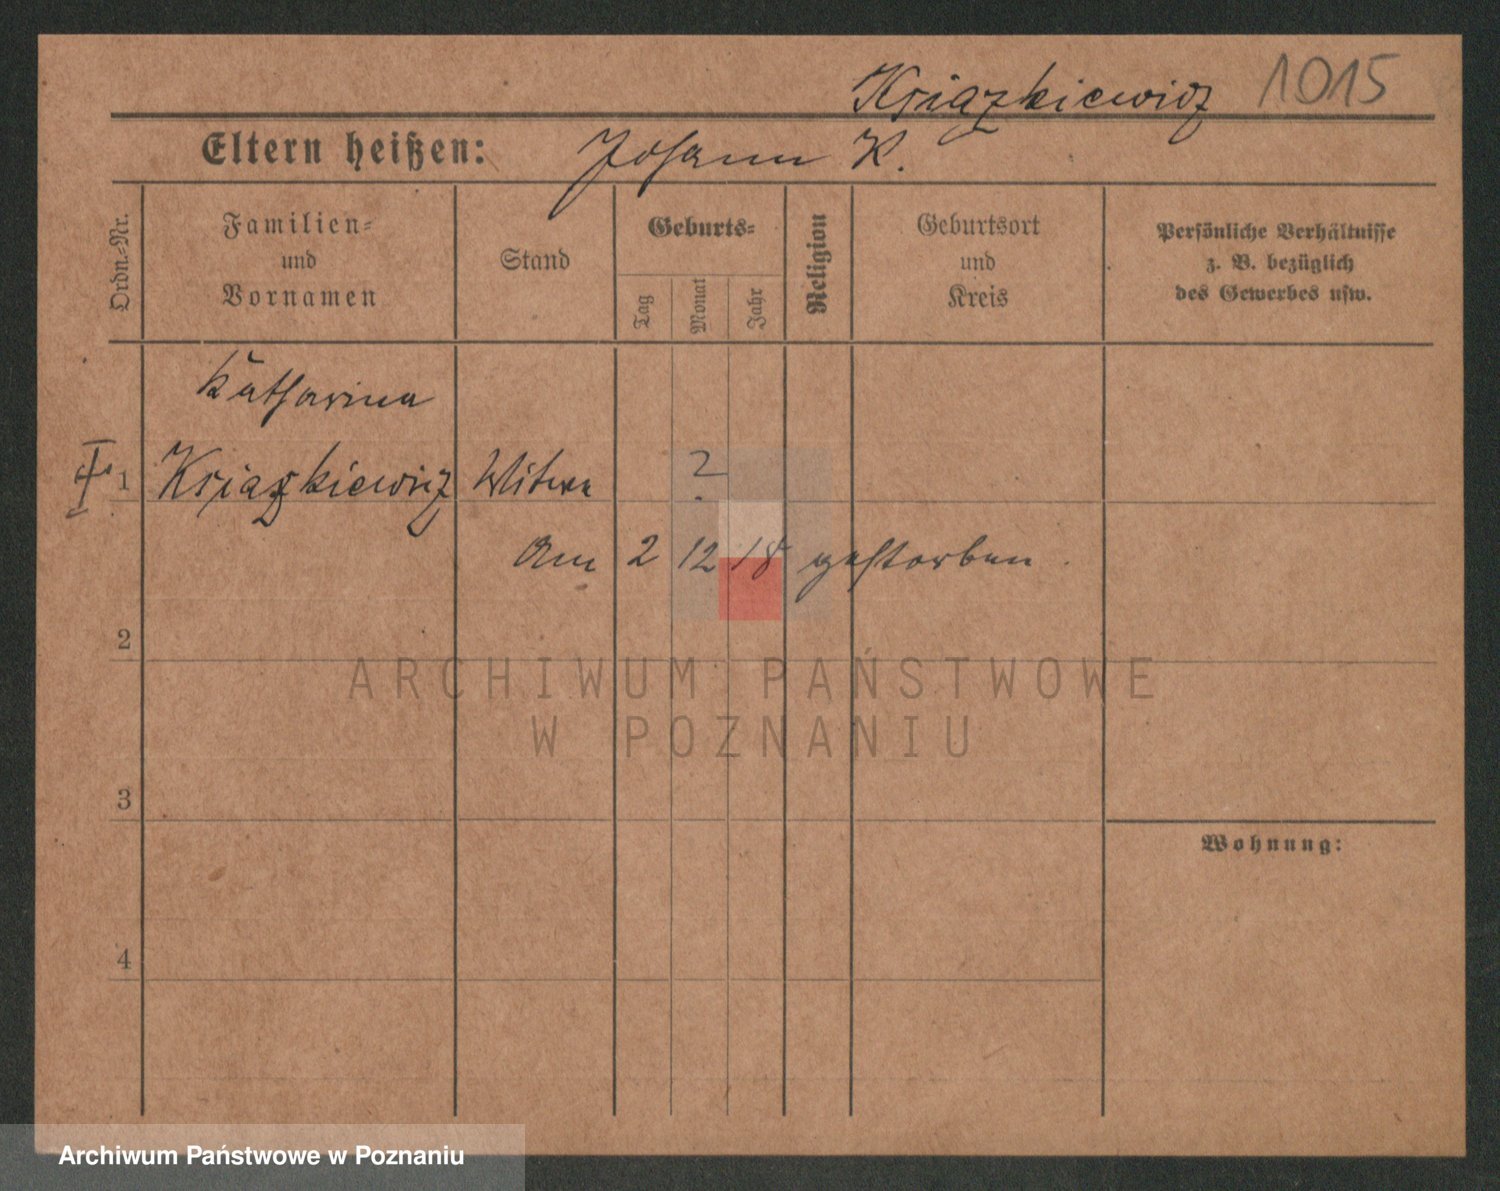 Książkiewicz 1015
Eltern heißen: Johann K.
Ordn.-Nr.
Familien-
und
Vornamen
Stand
Geburts-
Tag
Monat
Jahr
Religion
Geburtsort
und
Kreis
Persönliche Verhältnisse
z. B. bezüglich
des Gewerbes usw.
Katharina
I 1 Książkiewicz Witwe ?
Am 2 12 18 gestorben
2
ARCHIWUM PAŃSTWOWE
W POZNANIU
3
Wohnung:
4
Archiwum Państwowe w Poznaniu